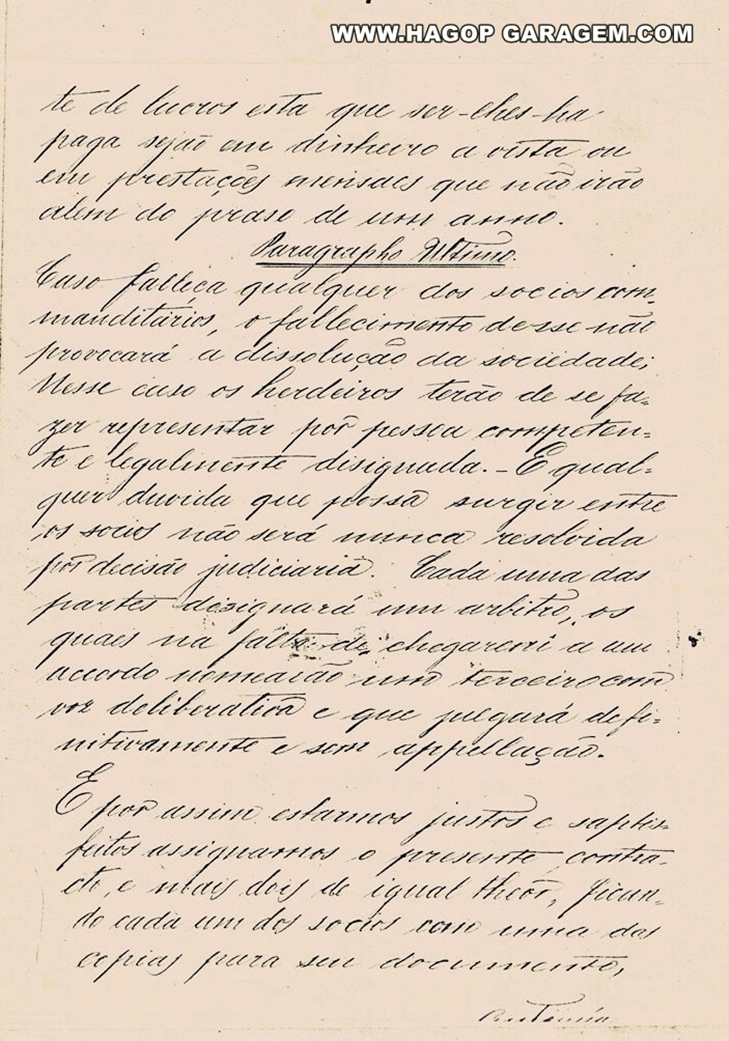 WWW.HAGOP GARAGEM.COM
te de lucros esta que ser-lhes-ha
paga sejão em dinheiro a vista ou
em prestações mensaes que não irão
alem do praso de um anno.
Paragrapho Ultimo.
Caso falleça qualquer dos socios com-
manditários, o fallecimento desse não
provocará a dissolução da sociedade;
Nesse caso os herdeiros terão de se fa-
zer representar pôr pessoa competen-
te e legalmente disignada. - E qual-
quer duvida que possa surgir entre
os socios não será nunca resolvida
pôr decisão judiciaria. Cada uma das
partes designará um arbitro, os
quaes na falta de chegarem a um
accordo nomearão um terceiro com
voz deliberativa e que julgará defi-
nitivamente e sem appellação.
E pôr assim estarmos justos e saptis-
feitos assignamos o presente contra-
cto, e mais dois de igual theôr, fican-
do cada um dos socios com uma das
copias para seu documento,